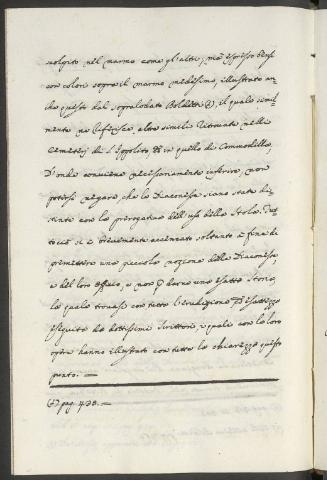 scolpito nel marmo come gl'altri, ma espresso bensì
con colori sopra il marmo medesimo, illustrato an
che questo dal sopralodato Boldetti (a), il quale simil-
mente ne riferisce altre simili ritrovate nelli
Cemeterj di S. Ippolito, ed in quello di Commodilla,
D'onde conviene necessariamente inferire, non
potersi negare, che le Diaconesse siano state di-
stinte con la prerogativa dell'uso della Stola. Tut
tociò si è brevemente accennato soltanto a fine di
premettere una piccola nozione delle Diaconesse,
e del loro officio, e non per darne un'esatta Storia,
la quale trovasi con tutta l'erudizione ed esattezza
eseguita da dottissimi Scrittori, i quali con le loro
opere hanno illustrato con tutta la chiarezza questo
punto. —
(a) pag. 438. —